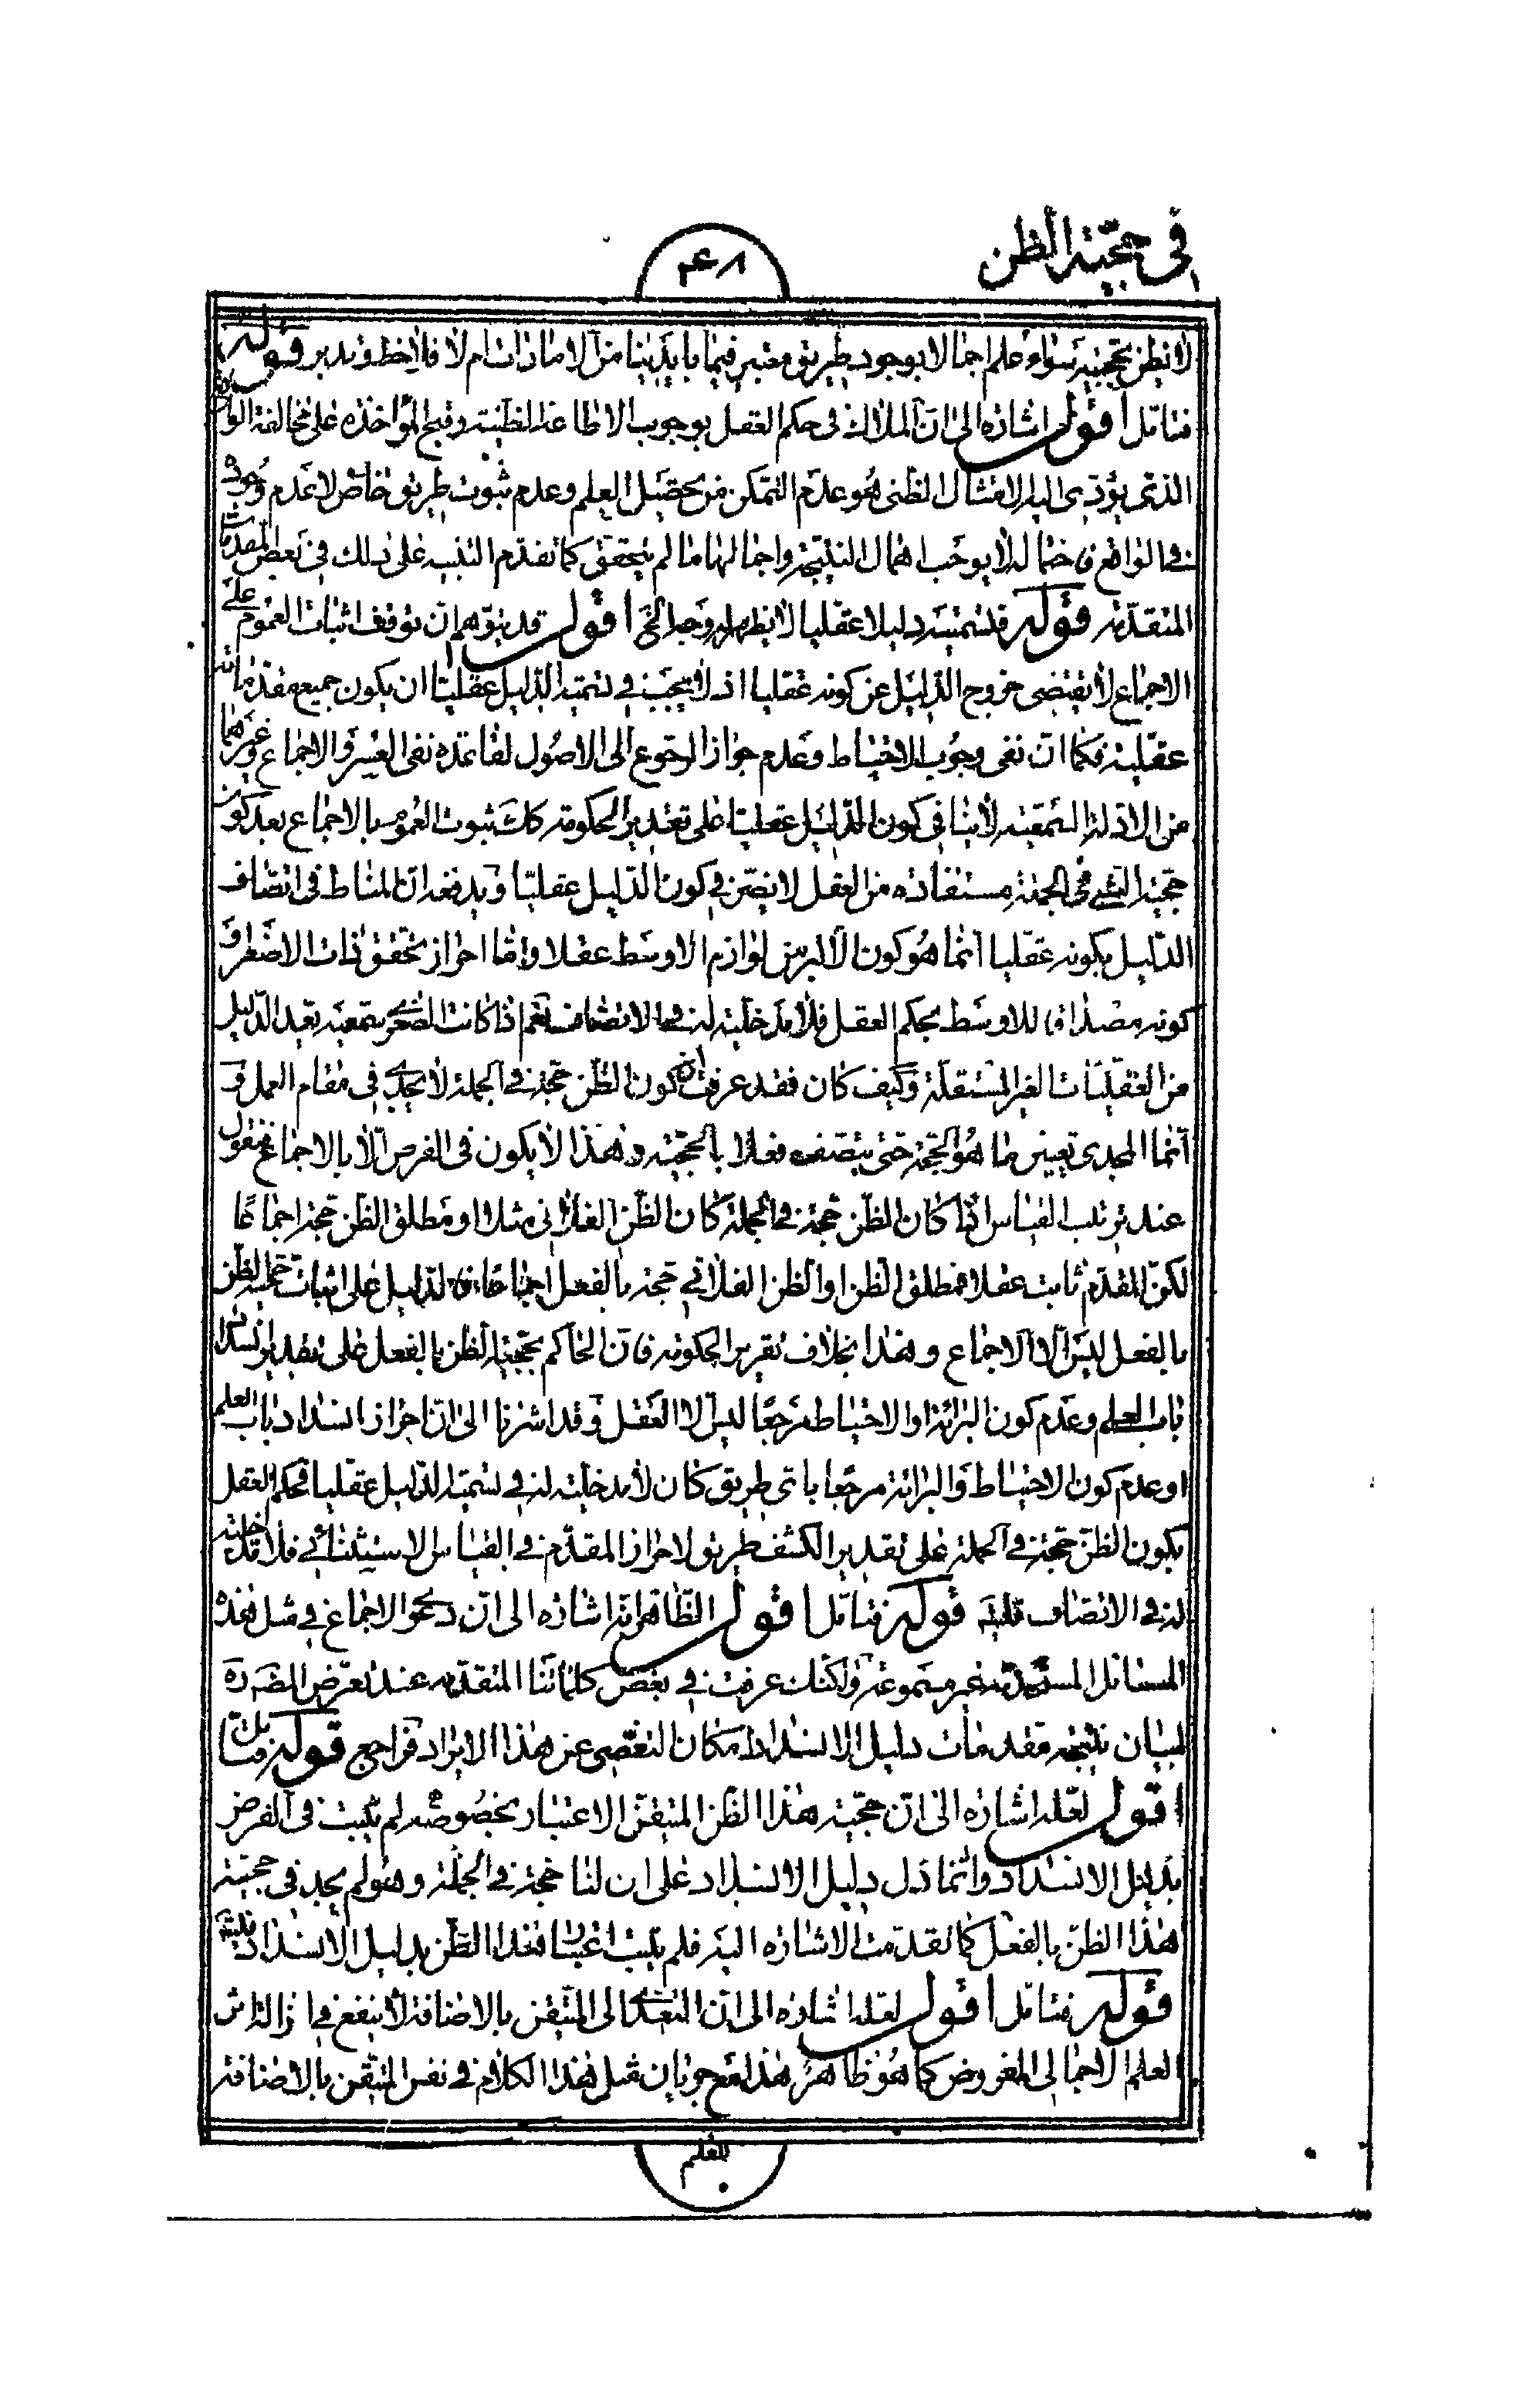 في حجّية الظن
لا نظن بحجيته سواء علم اجمالا بوجود طريق معتبر فيما بايدينا من الامارات ام لا فلاحظ وتدبر قوله
فتامّل اقول اشارة الى انّ الملاك في حكم العقل بوجوب الاطاعة الظنية وقبح المؤاخذة على مخالفة الواقع
الذي يؤدّي اليه الامتثال الظني هو عدم التمكن من تحصيل العلم وعدم ثبوت طريق خاص لا عدم وجوده
في الواقع فاحتماله لا يوجب اهمال النتيجة واجمالها ما لم يتحقق كما تقدّم التنبيه على ذلك في بعض المقدمات
المتقدّمة قوله فتسميته دليلا عقليا لا يظهر له وجه الخ اقول قد يتوّهم انّ توقف اثبات العموم على
الاجماع لا يقتضي خروج الدّليل عن كونه عقليا اذ لا يجب في تسمية الدّليل عقليّا ان يكون جميع مقدّماته
عقليّة فكما انّ نفي وجوب الاحتياط وعدم جواز الرجوع الى الاصول لقاعدة نفي العسر والاجماع وغيرهما
من الادلة السّمعيّة لا ينافي كون الدّليل عقليّا على تقدير الحكومة كك ثبوت العموم بالاجماع بعد كون
حجّية الشيء في الجملة مستفادة من العقل لا يضرّ في كون الدّليل عقليّا ويدفعه انّ المناط في اتصاف
الدّليل بكونه عقليا انّما هو كون الاكبر من لوازم الاوسط عقلا وامّا احراز تحقق ذات الاصغر و
كونه مصداقا للاوسط بحكم العقل فلا مدخليّة له في الاتصاف نعم اذا كانت الصّغرى سمعيّة يعدّ الدّليل
من العقليّات الغير المستقلّة وكيف كان فقد عرفت انّ كون الظّن حجّة في الجملة لا يجدي في مقام العمل و
انّما المجدي تعيين ما هو الحجّة حتى يتّصف فعلا بالحجّيّة وهذا لا يكون في الفرض الّا بالاجماع فنقول
عند ترتيب القياس لمّا كان الظّن حجّة في الجملة كان الظّن الفلاني مثلا او مطلق الظّن حجة اجماعًا
لكنّ المقدّم ثابت عقلا فمطلق الظن او الظن الفلاني حجة بالفعل اجماعا فالدّليل على اثبات حجّية الظن
بالفعل ليس الّا الاجماع وهذا بخلاف تقرير الحكومة فانّ الحاكم بحجّية الظن بالفعل على تقدير انسداد
باب العلم وعدم كون البرائة او الاحتياط مرجعًا ليس الّا العقل وقد اشرنا الى انّ احراز انسداد باب العلم
او عدم كون الاحتياط والبرائة مرجعا بايّ طريق كان لا مدخليّة له في تسمية الدّليل عقليا فحكم العقل
بكون الظّن حجّة في الجملة على تقدير الكشف طريق لاحراز المقدّم في القياس الاستثنائي فلا مدخليّة
له في الاتّصاف فليته قوله فتامّل اقول الظّاهر انّه اشارة الى انّ دعوى الاجماع في مثل هذه
المسائل المستحدثة غير مسموعة ولكنّك عرفت في بعض كلماتنا المتقدّمة عند تعرّض المصنّف ره
لبيان نتيجة مقدمات دليل الانسداد امكان التفصّي عن هذا الايراد فراجع قوله فتامّل
اقول لعلّه اشارة الى انّ حجّية هذا الظّن المتيقّن الاعتبار بخصوصه لم يثبت في الفرض
بدليل الانسداد وانّما دلّ دليل الانسداد على ان لنا حجّة في الجملة وهو لم يجد في حجّية
هذا الظنّ بالفعل كما تقدّمت الاشارة اليه فلم يثبت اعتبار هذا الظّن بدليل الانسداد فليته
قوله فتامّل اقول لعلّه اشارة الى انّ التعدّي الى المتيقن بالاضافة لا ينفع في ازالة اثر
العلم الاجمالي المفروض كما هو ظاهر هذا مع جريان مثل هذا الكلام في نفس المتيقن بالاضافة
للعلم